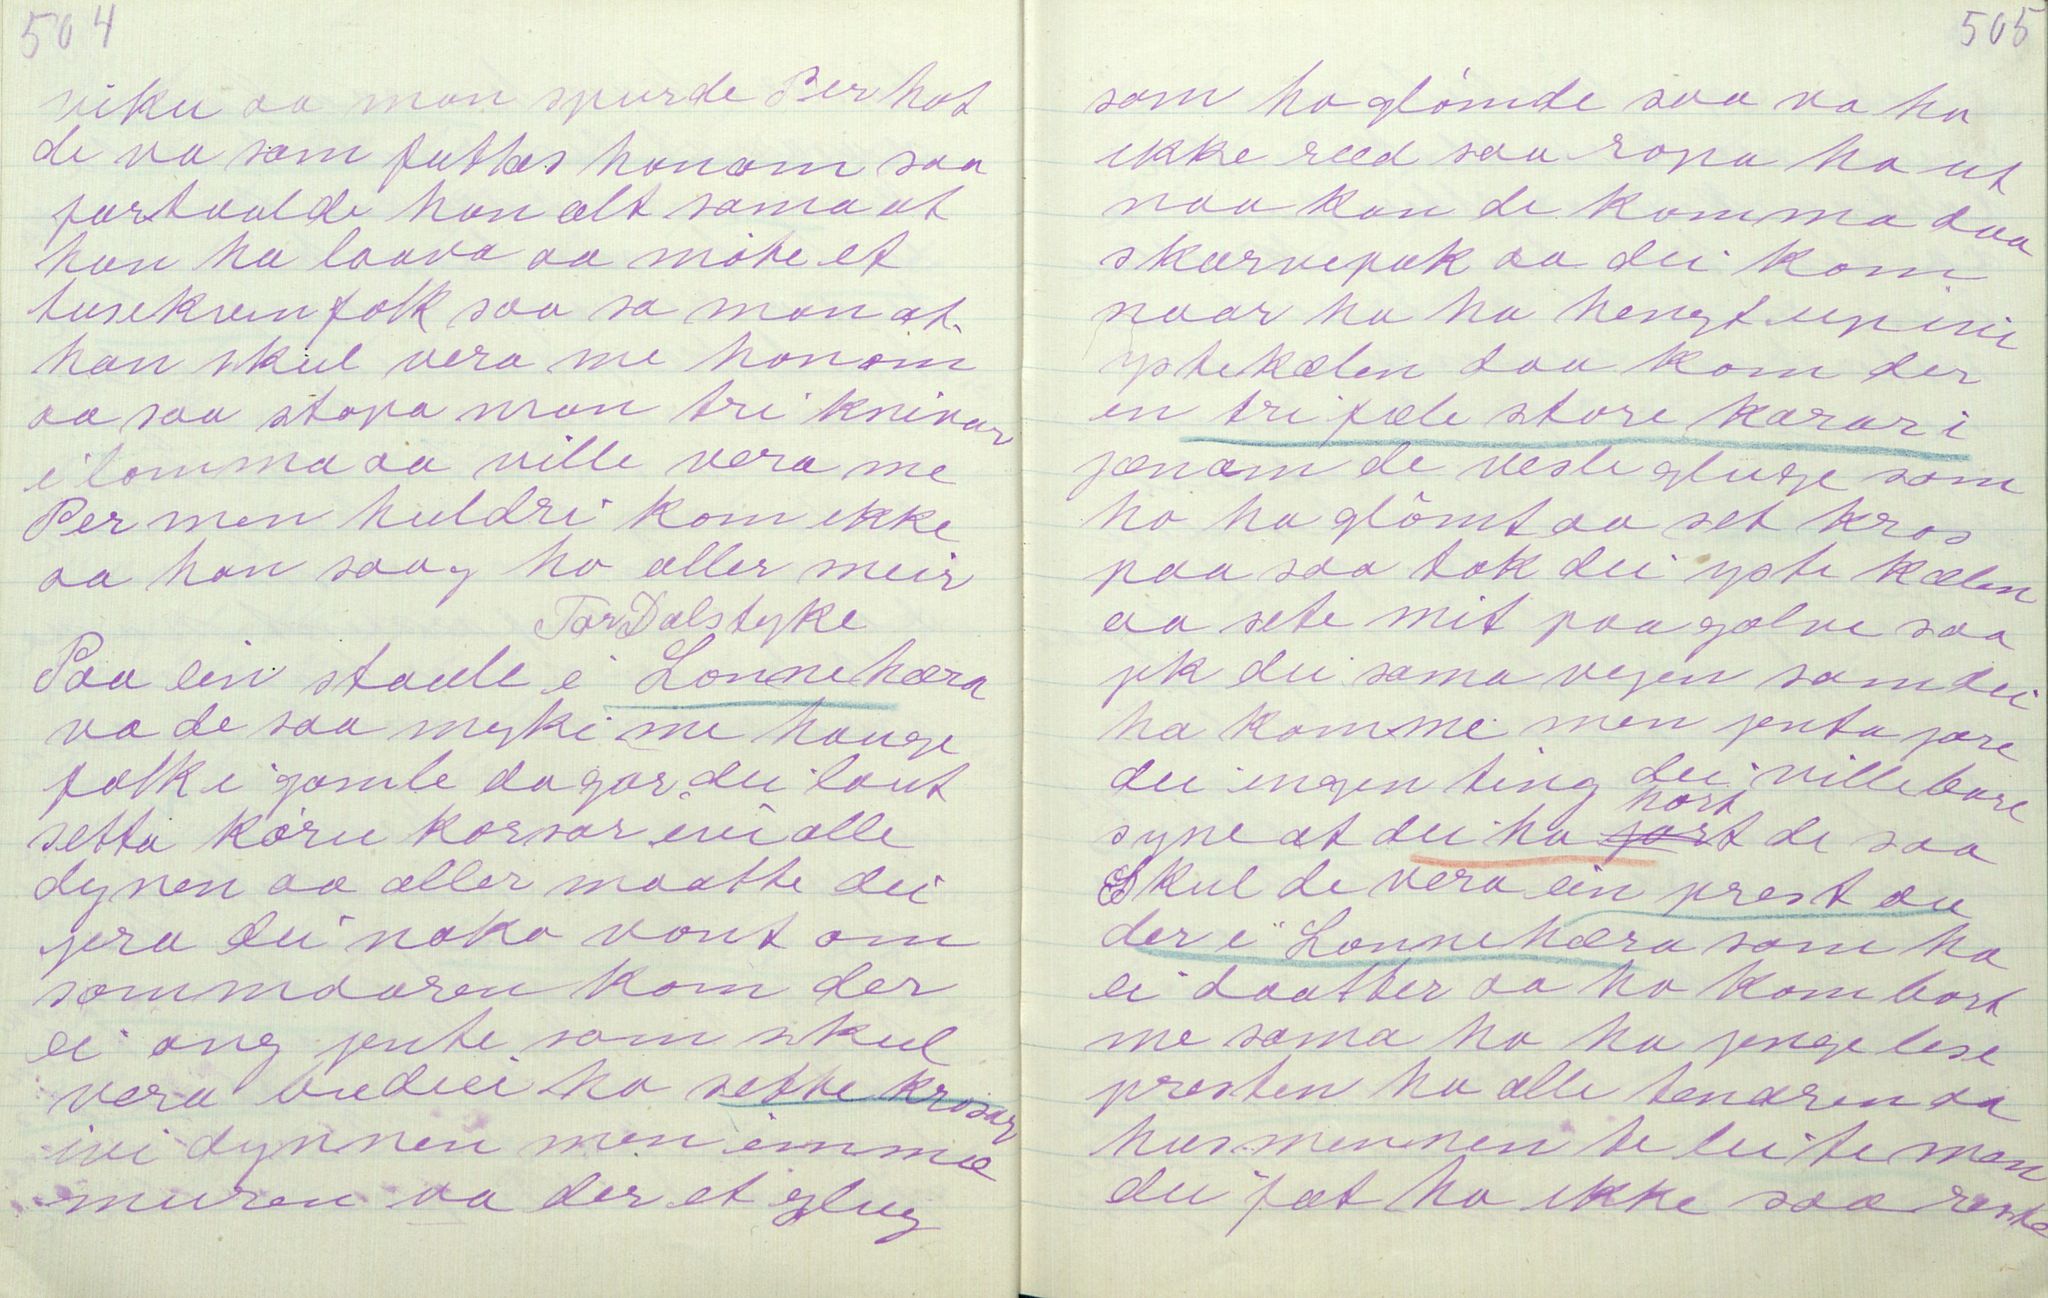 504
viku aa man spurde Per hot
de va som fattas honom saa
fortaalde han alt sama at
han ha laava aa möte et
tusekvinfolk saa sa man at
han skul vera me honom
aa saa stopa man tri knivar
i lomma aa ville vera me
Per men huldri kom ikke
aa han saag ho aller meir
Tor Dalstyke
Paa ein staele i Lonnehæra
va de saa myki me hauge
folk i gamle dagar dei laut
setta köru korsar ivi alle
dynen aa aller maatte dei
jera dei noko vont om
sommaaren kom der
ei ong jente som skul
vera budei ho sette krosar
ivi dynnen men i mmæ
muren va der et glug
505
som ho glömde saa va ho
ikke ræd saa ropa ho ut
naa kan de komma daa
skarvepak aa dei kom
naar ho ha hengt up ini
ystekælen daa kom der
en tri fæle store karar i
jænom de vesle gluge som
ho ha glömt aa set kros
paa saa tok dei yste kælen
aa sete mit paa golve saa
jik dei sama vejen som dei
ha komme men jenta jore
dei ingen ting dei ville bare
syne at dei ha jort hort de saa
Skul de vera ein prest au
der i Lonnehæra som ha
ei daatter aa ho kom bort
me sama ho ha jenge lese
presten ha alle tendren aa
husmennen te leite men
dei fæt ho ikke saa reste